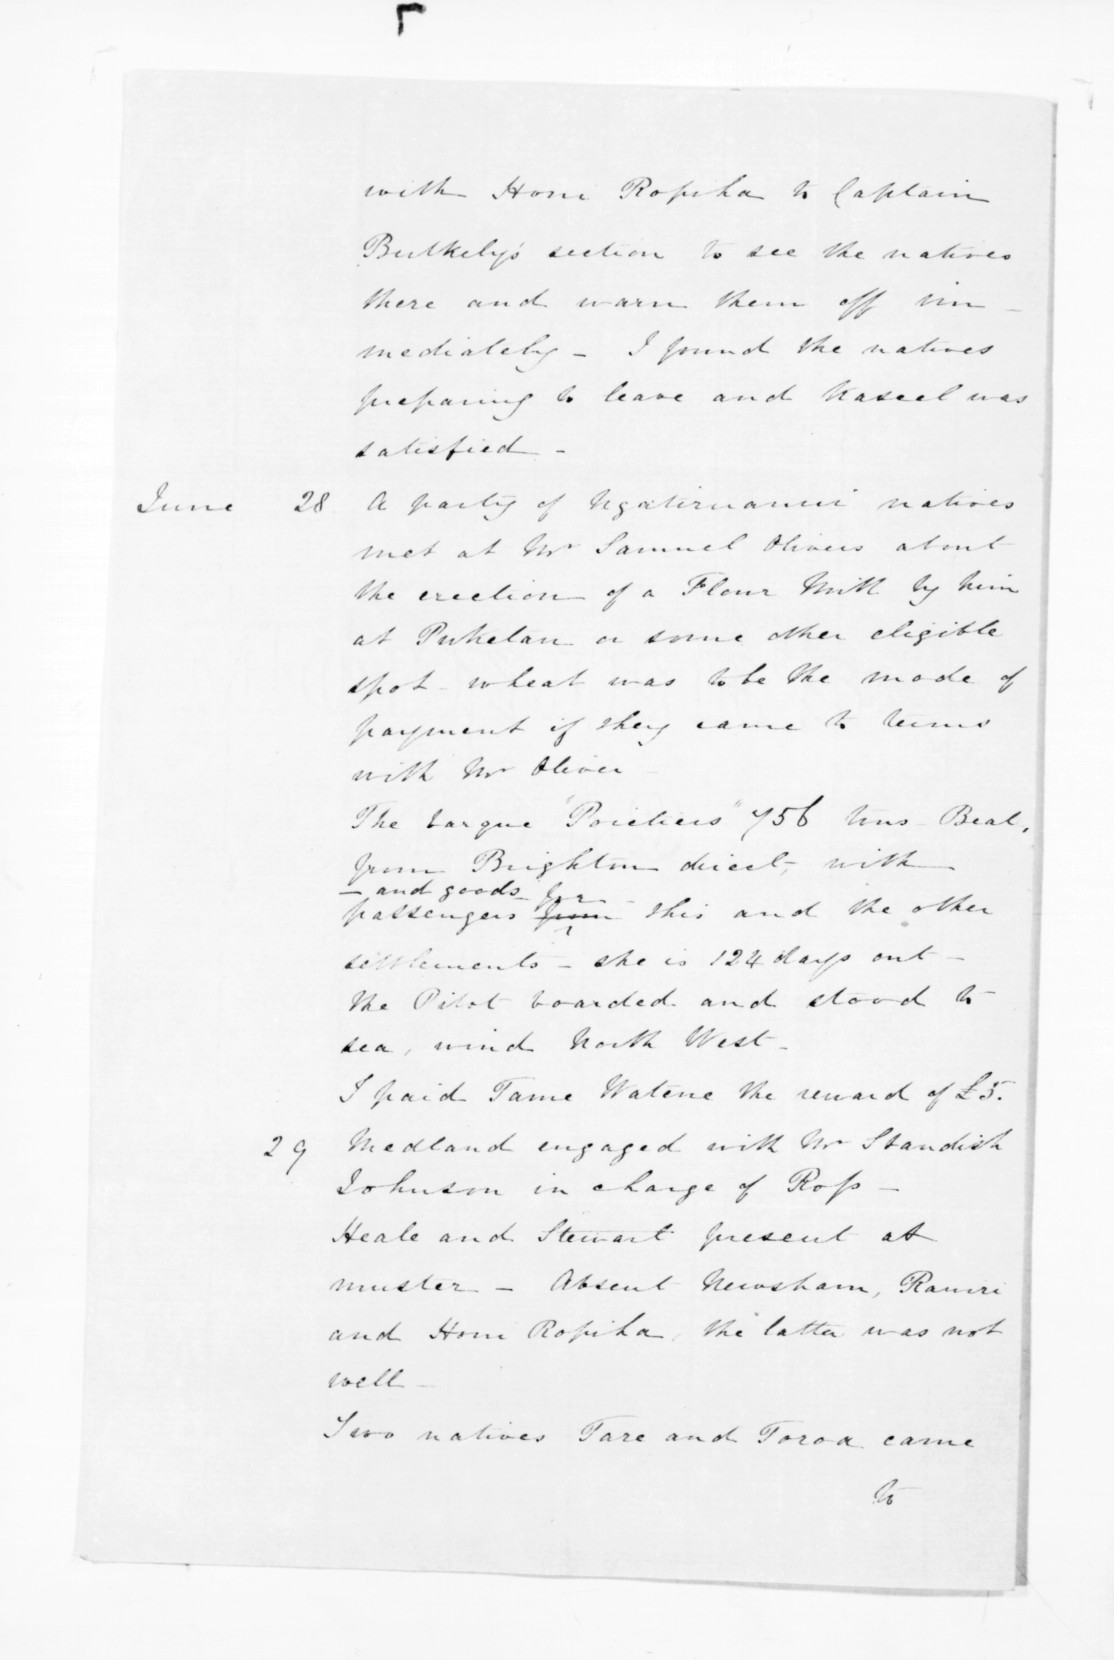 with Honi Ropiha to Captain
Bulkely's section to see the natives
there and warn them off im-
mediately - I found the natives
preparing to leave and Kaseel was
satisfied -
June 28 A party of Ngatiruanui natives
met at Mr Samuel Olivers about
the erection of a Flour Mill by him
at Puketau or some other eligible
spot - wheat was to be the mode of
payment if they came to terms
with Mr Oliver
The barque "Poictiers" 756 tons Beal,
from Brighton direct, with
- and goods for -
passengers from this and the other
settlements - she is 124 days out -
the Pilot boarded and stood to
sea, wind North West -
I paid Tame Watene the reward of £5.
29 Medland engaged with Mr Standish
Johnson in charge of Ross -
Heale and Stewart present at
muster - Absent Newsham, Rawiri
and Honi Ropiha, the latter was not
well -
Two natives Tare and Toroa came
to